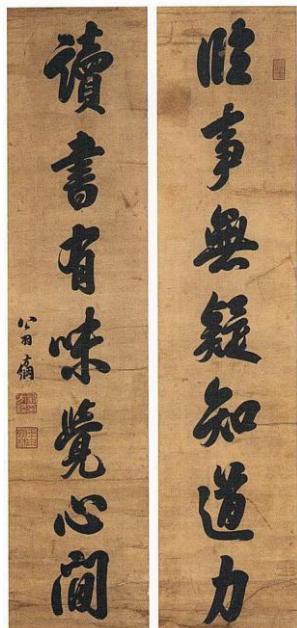 臨事無疑知道力
讀書有味覺心閒
翁方綱